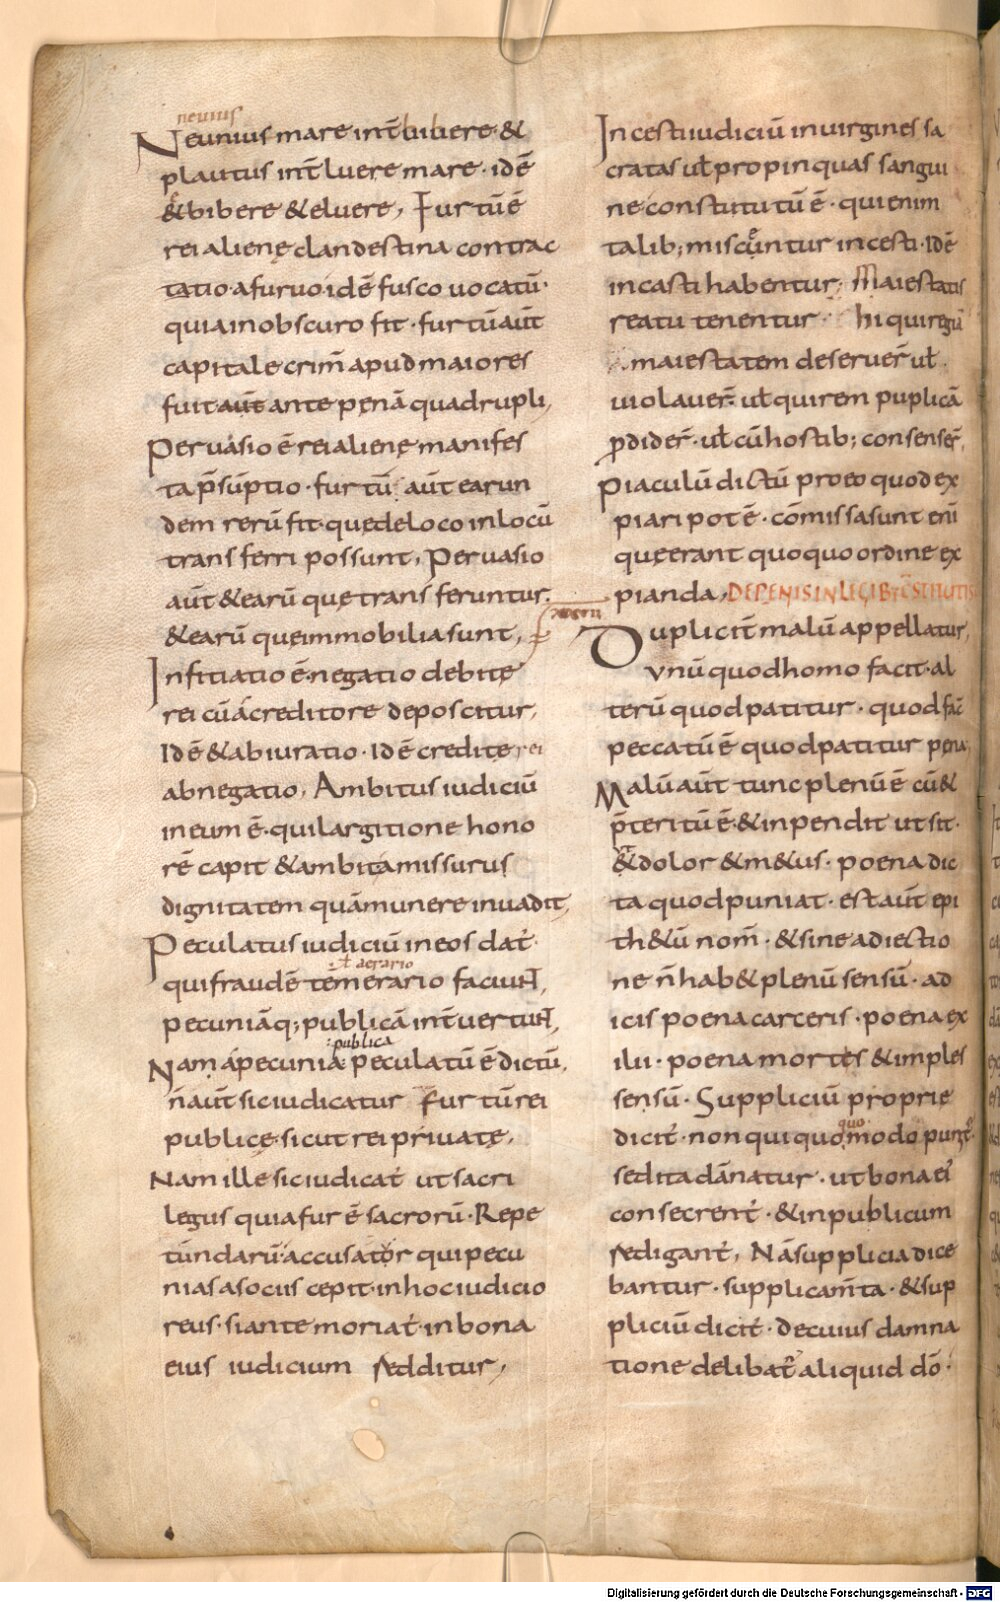 neuius
Neunius mare int̄ bibere &
plautus int̄ luere mare · idē
& bibere & eluere, Furtū ē
rei alienę clandestina contrac
tatio · a furuo idē fusco uocatū ·
quia in obscuro fit · furtū aūt
capitale crim̄ apud maiores
fuit aūt ante penā quadrupli,
Peruasio ē rei alienę manifes
ta p̄sūptio · furtū aūt earun
dem rerū fit · quę de loco in locū
transferri possunt, Peruasio
aūt & earū quę transferuntur
& earū que immobilia sunt,
Infitiatio ē negatio debitę
rei cū á creditore deposcitur,
Idē & abiuratio · Idē creditę rei
abnegatio, Ambitus iudiciū
in eum ē · qui largitione hono
rē capit & ambit amissurus
dignitatem quā munere inuadit,
Peculatus iudiciū in eos daṫ
ut aerario
qui fraudē temerario faciunt,
pecuniāq; publicā int̄uertunt,
publica
Nam á pecunia peculatū ē dictū,
n̄ aūt sic iudicatur Furtū rei
publicę · sicut rei priuatę,
Nam ille sic iudicaṫ ut sacri
legus quia fur ē sacrorū · Repe
tūndarū accusatọr qui pecu
nias a sociis cepit · in hoc iudicio
reus · si ante moriaṫ in bona
eius iudicium redditur,
Incesti iudiciū in uirgines sa
cratas uł propinquas sangui
ne constitutū ē · qui enim
talib; miscuntur incesti · Idē
incasti habentur, Maiestatis
reatu tenentur · hi qui regiū
maiestatem deseruer̄ uł
uiolauer̄ · uł qui rem puplicā
p̱dider̄ · uł cū hostib; consenser̄,
Piaculū dictū pro eo quod ex
piari pot ē · cōmissa sunt eni
quę erant quoquo ordine ex
pianda, DE PENIS IN LEGIB; CSTITUTIS
Dupliciṫ malū appellatur,
Vnū quod homo facit · al
terū quod patitur · quod faċ
peccatū ē quod patitur pena,
Malū aūt tunc plenū ē cū &
p̄teritū ē & inpendit ut sit ·
& dolor & m&us · poena dic
ta quod puniat · est aūt epi
th&ū nom̄ · & sine adiectio
ne n̄ hab& plenū sensū · ad
icis poena carceris · poena ex
ilii · poena mortes & imples
sensū · Suppliciū proprie
quo
diciṫ · non qui quomodo punit̄ ·
sed ita dānatur · ut bona ei'
consecrenṫ · & in publicum
redigant, Nā supplicia dice
bantur · supplicam̄ta · & sup
pliciū diciṫ · de cuius damna
tione delibat̄ aliquid dō ·
Digitalisierung gefördert durch die Deutsche Forschungsgemeinschaft - DFG